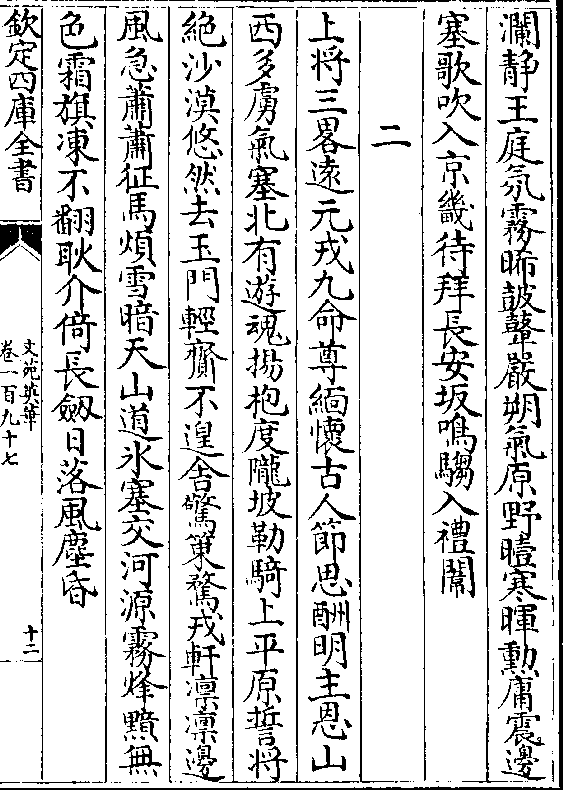 瀾静王庭氛霧晞皷鼙嚴朔氣原野曀寒暉勲庸震邊
塞歌吹入京畿待拜長安坂鳴騶入禮闈
二
上将三畧逺元戎九命尊緬懷古人節思酬明主恩山
西多勇氣塞北有遊魂揚枹度隴坡勒騎上平原誓将
絶沙漠悠然去玉門輕齎不遑舍驚策騖戎軒凛凛邊
風急蕭蕭征馬煩雪暗天山道氷塞交河源霧烽黯無
色霜旗凍不翻耿介倚長劔日落風塵昏
欽定四庫全書
文苑英華
卷一百九十七
十二